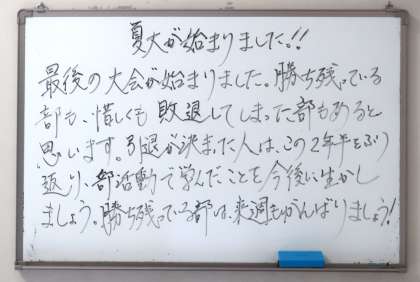 夏大が始まりました!!
最後の大会が始まりました。勝ち残っている
部も、惜しくも敗退してしまった部もあると
思います。引退が決まった人は、この2年半をふり
返り、部活動で学んだことを今後に生かし
ましょう。勝ち残っている部は、来週もがんばりましょう!